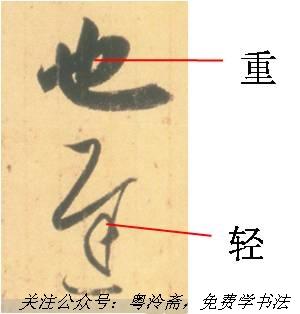 也
重
轻
关注公众号：粤泠斋，免费学书法